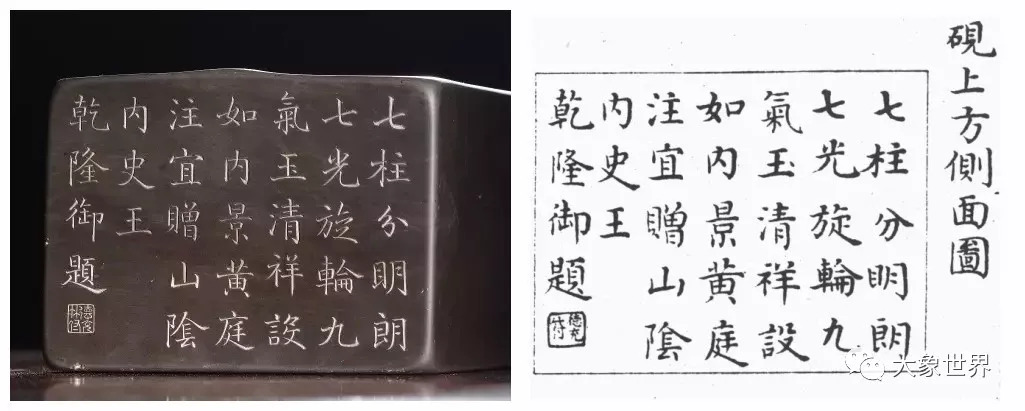 七柱分明朗
七光旋輪九
氣玉清祥設
如内景黄庭
注宜贈山陰
内史王
乾隆御題
硯上方側面圖
七柱分明朗
七光旋輪九
氣玉清祥設
如内景黄庭
注宜贈山陰
内史王
乾隆御題
大象世界